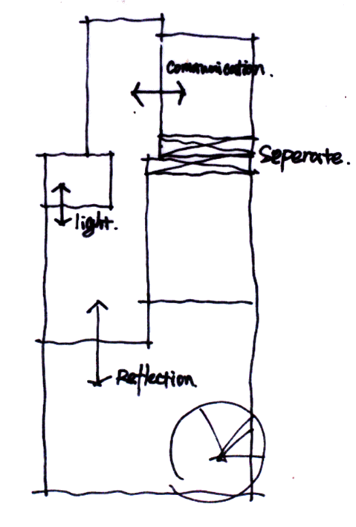 Communication.
Seperate.
light.
Reflection